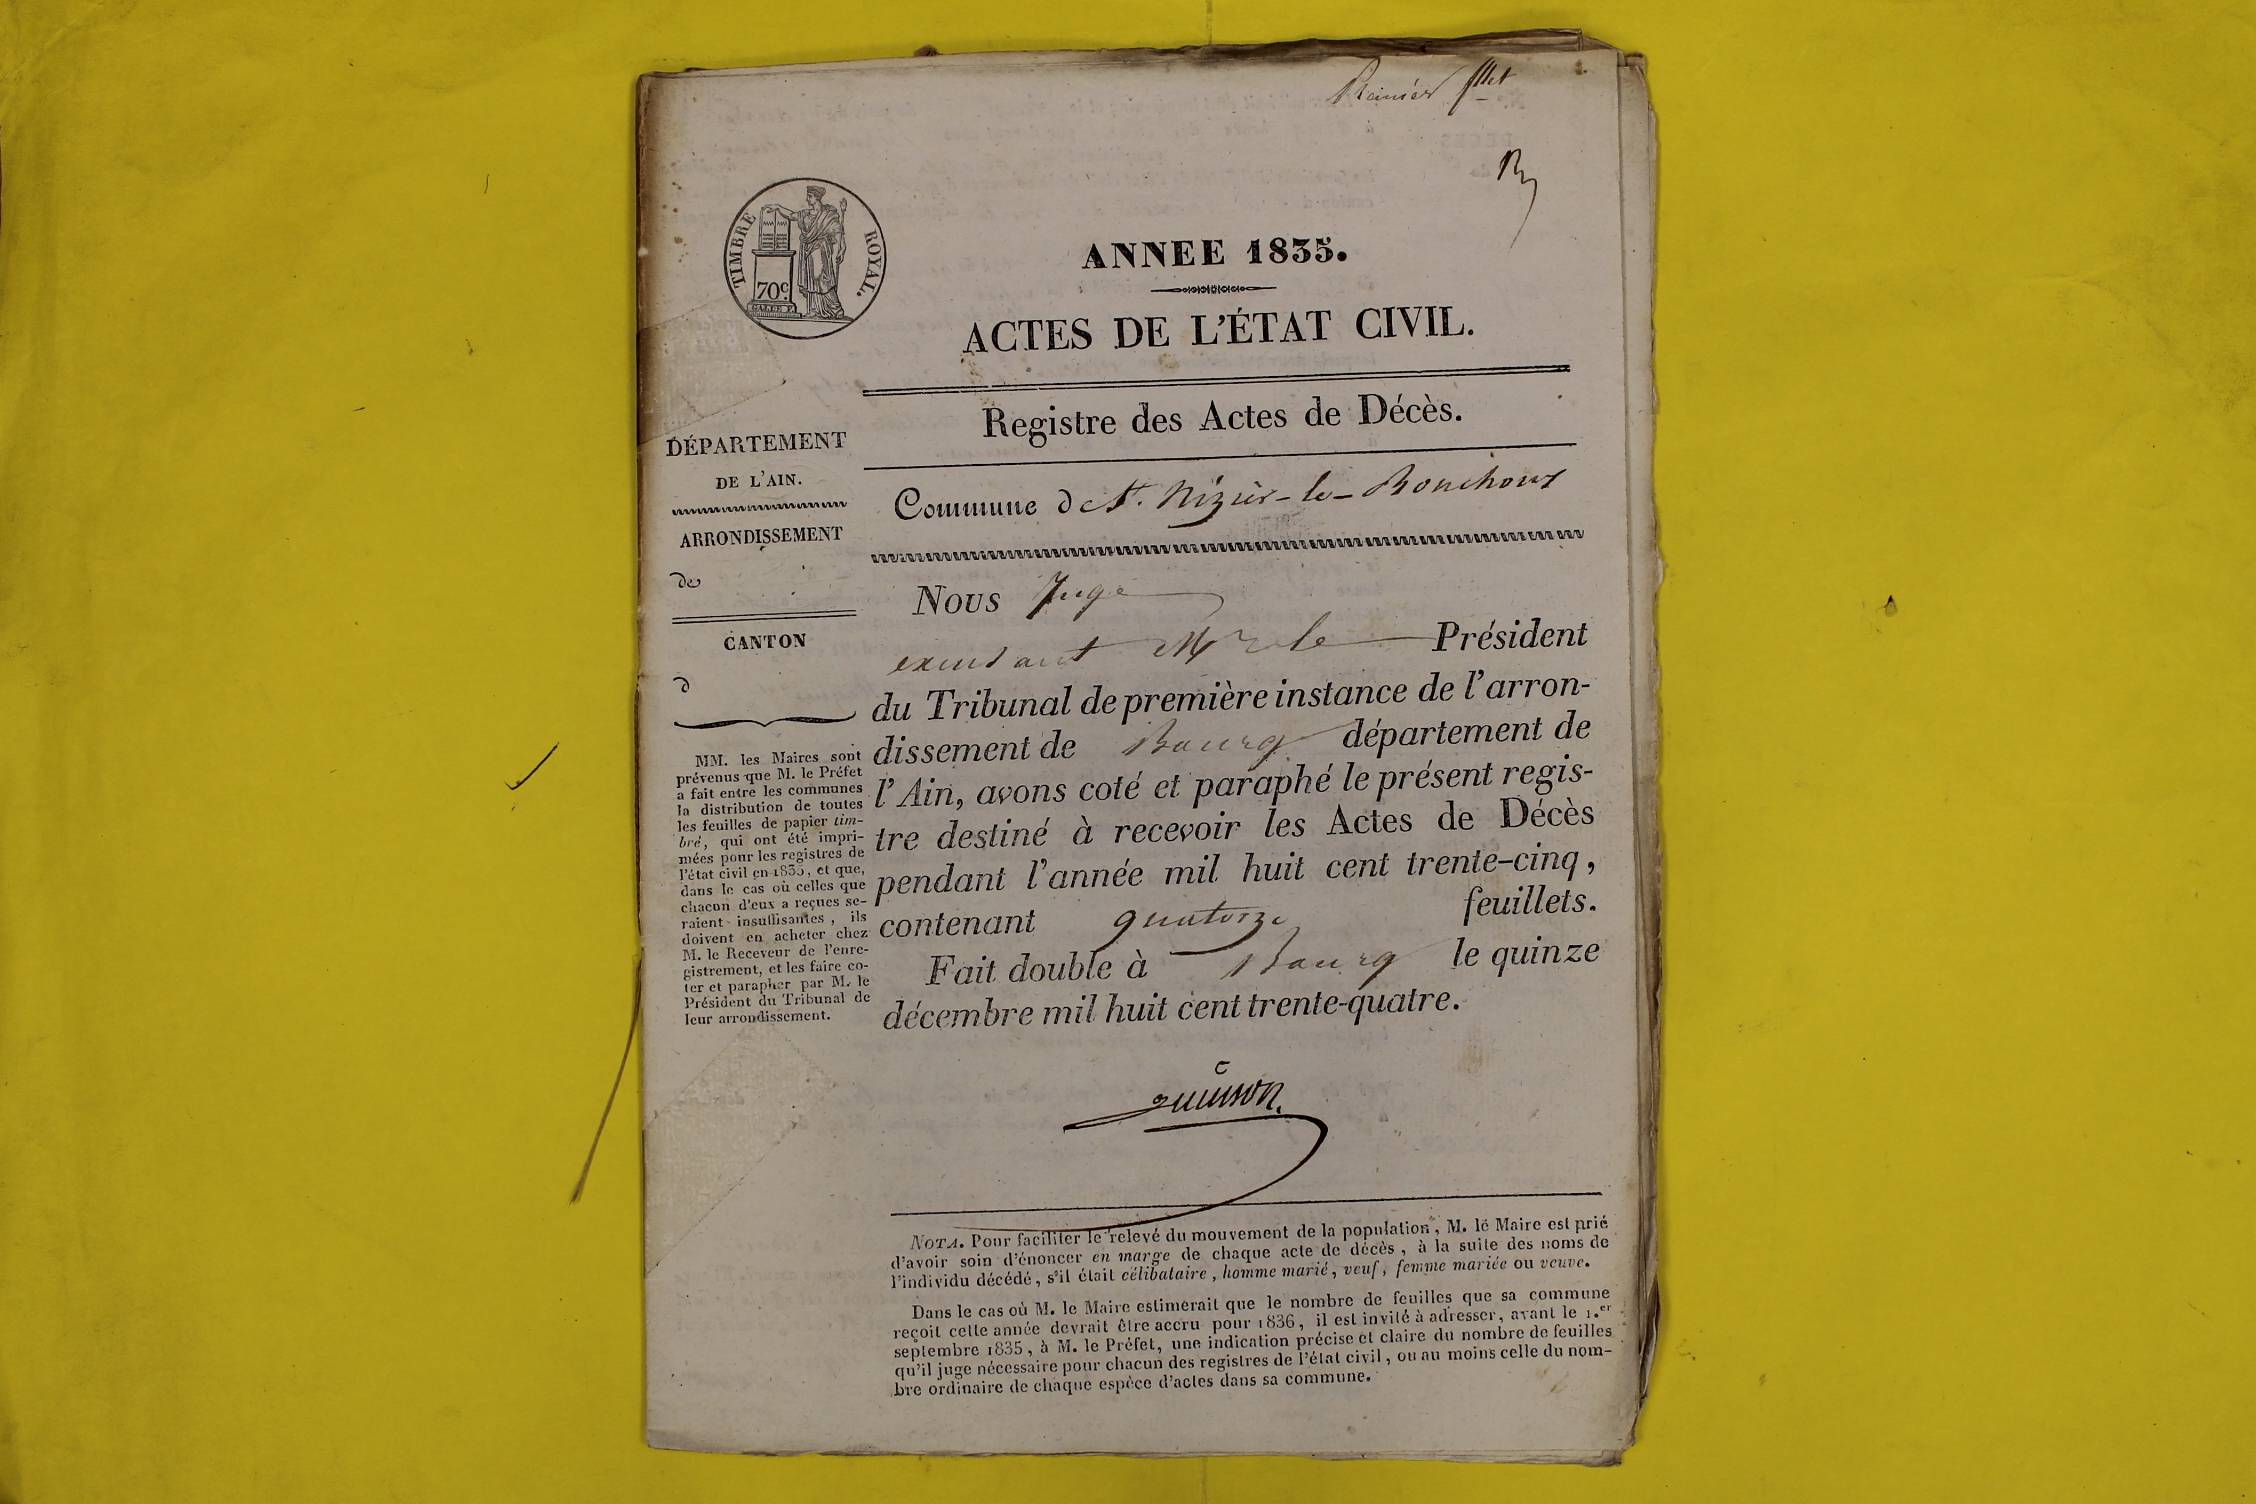 TIMBRE ROYAL.
70c.
ANNEE 1835.
ACTES DE L'ÉTAT CIVIL.
Registre des Actes de Décès.
Commune de St. Nizier-le-Bouchoux
DÉPARTEMENT
DE L'AIN.
ARRONDISSEMENT
de
CANTON
d
MM. les Maires sont
prévenus que M. le Préfet
a fait entre les communes
la distribution de toutes
les feuilles de papier tim-
bré, qui ont été impri-
mées pour les registres de
l'état civil en 1835, et que,
dans le cas où celles que
chacun d'eux a reçues se-
raient insuffisantes, ils
doivent en acheter chez
M. le Receveur de l'enre-
gistrement, et les faire co-
ter et parapher par M. le
Président du Tribunal de
leur arrondissement.
Nous Juge
exerçant Mr le Président
du Tribunal de première instance de l'arron-
dissement de Bourg département de
l'Ain, avons coté et paraphé le présent regis-
tre destiné à recevoir les Actes de Décès
pendant l'année mil huit cent trente-cinq,
contenant quatorze feuillets.
Fait double à Bourg le quinze
décembre mil huit cent trente-quatre.
NOTA. Pour faciliter le relevé du mouvement de la population, M. le Maire est prié
d'avoir soin d'énoncer en marge de chaque acte de décès, à la suite des noms de
l'individu décédé, s'il était célibataire, homme marié, veuf, femme mariée ou veuve.
Dans le cas où M. le Maire estimerait que le nombre de feuilles que sa commune
reçoit cette année devrait être accru pour 1836, il est invité à adresser, avant le 1.er
septembre 1835, à M. le Préfet, une indication précise et claire du nombre de feuilles
qu'il juge nécessaire pour chacun des registres de l'état civil, ou au moins celle du nom-
bre ordinaire de chaque espèce d'actes dans sa commune.